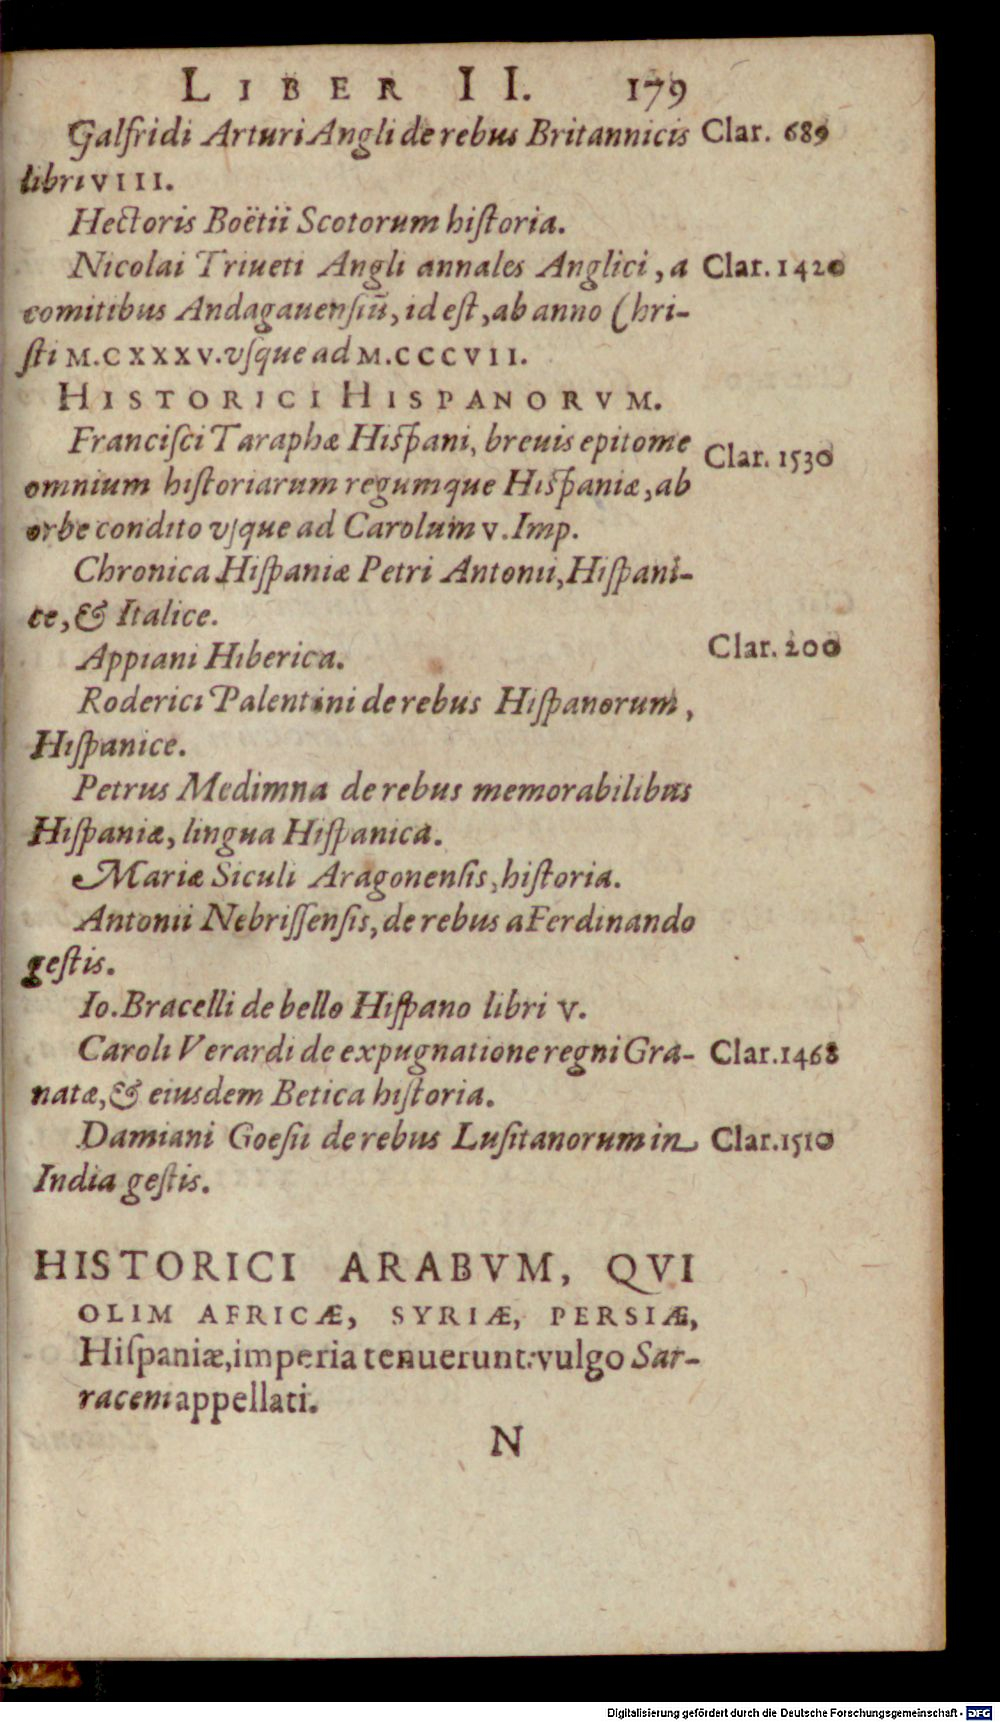 LIBER II. 179
Galfridi Arturi Angli de rebus Britannicis Clar. 689
libri VIII.
Hectoris Boëtii Scotorum hiſtoria.
Nicolai Triueti Angli annales Anglici, a Clar. 1420
comitibus Andagauenſiū, id eſt, ab anno Chri-
ſti M.CXXXV. vſque ad M.CCCVII.
HISTORICI HISPANORVM.
Franciſci Taraphæ Hiſpani, breuis epitome
Clar. 1530
omnium hiſtoriarum regumque Hiſpaniæ, ab
orbe condito vſque ad Carolum V. Imp.
Chronica Hiſpaniæ Petri Antonii, Hiſpani-
ce, & Italice.
Appiani Hiberica. Clar. 200
Roderici Palentini de rebus Hiſpanorum,
Hiſpanice.
Petrus Medimna de rebus memorabilibus
Hiſpaniæ, lingua Hiſpanica.
Mariæ Siculi Aragonenſis, hiſtoria.
Antonii Nebriſſenſis, de rebus a Ferdinando
geſtis.
Io. Bracelli de bello Hiſpano libri V.
Caroli Verardi de expugnatione regni Gra- Clar. 1468
natæ, & eiusdem Betica hiſtoria.
Damiani Goeſii de rebus Luſitanorum in Clar. 1510
India geſtis.
HISTORICI ARABVM, QVI
OLIM AFRICÆ, SYRIÆ, PERSIÆ,
Hiſpaniæ, imperia tenuerunt: vulgo Sar-
raceni appellati.
N
Digitalisierung gefördert durch die Deutsche Forschungsgemeinschaft - DFG